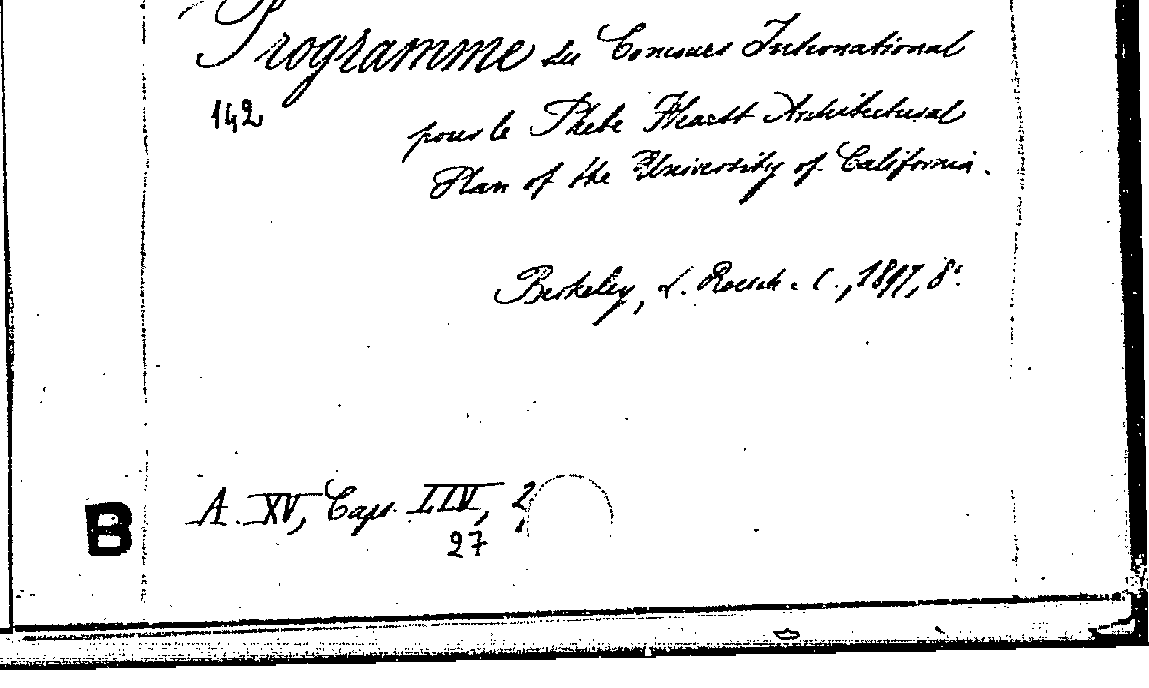 Programme du Concours International
142
pour le Phebe Hearst Architectural
Plan of the University of California.
Berkeley, L. Roesch. C., 1897, 8°.
B A. XV, Caps. IIV, 2,
27